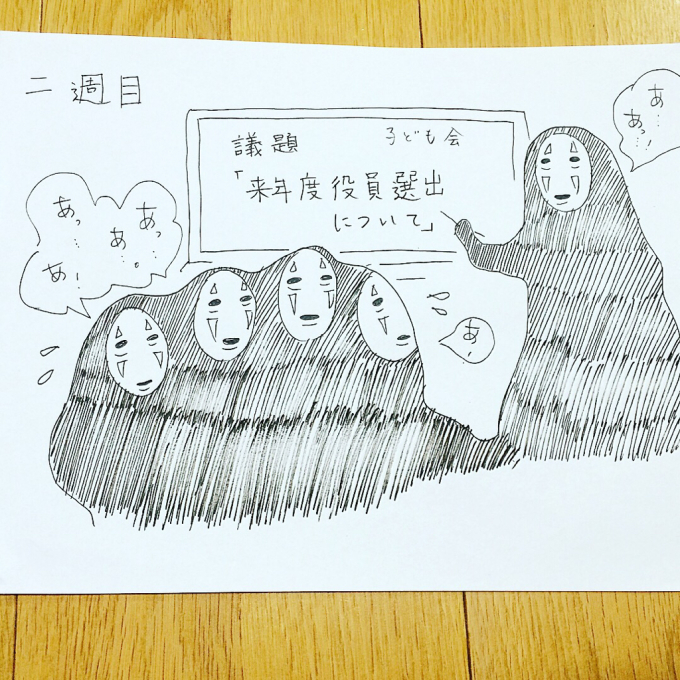 二週目
議題 子ども会
「来年度役員選出
について」
あ…
あっ…!
あっ…
あっ…
あ…。
あ!
あ、